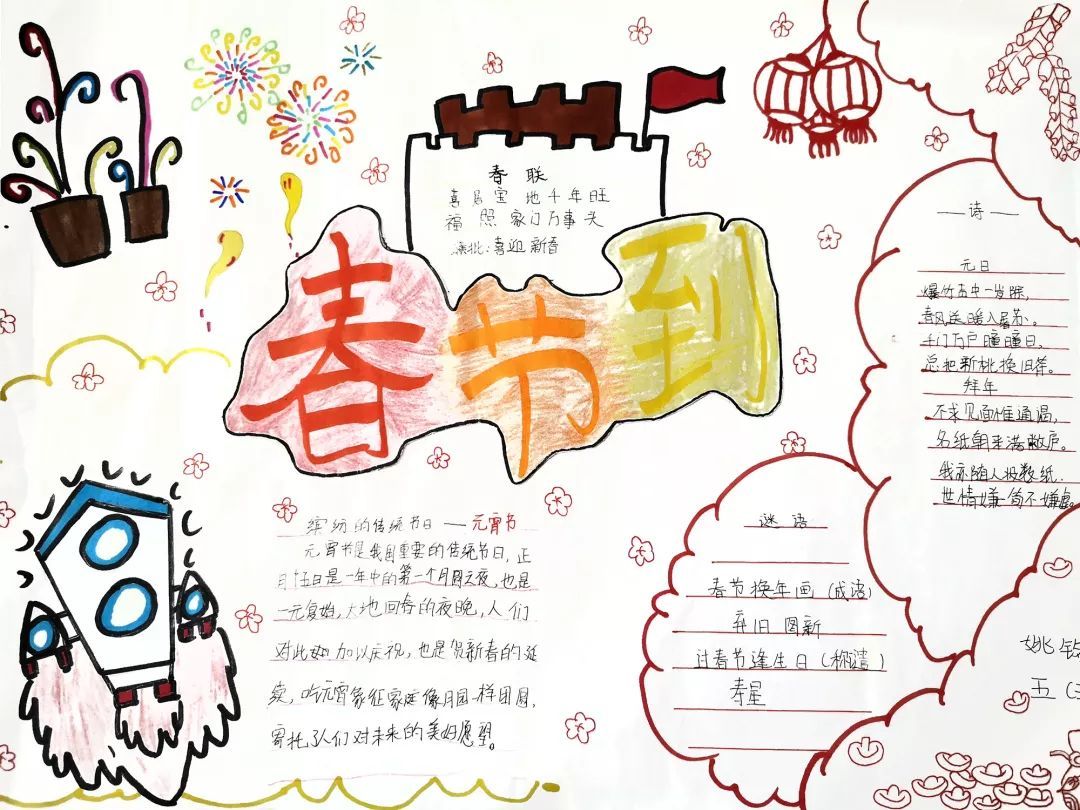 春联
喜居宝地千年旺
福照家门万事头
横批:喜迎新春
春节到
缤纷的传统节日——元宵节
元宵节是我国重要的传统节日,正
月十五日是一年中的第一个月圆之夜,也是
一元复始,大地回春的夜晚,人们
对此加以庆祝,也是贺新春的延
续,吃元宵象征家庭像月圆一样团圆,
寄托了人们对未来的美好愿望。
—诗—
元日
爆竹声中一岁除,
春风送暖入屠苏。
千门万户曈曈日,
总把新桃换旧符。
拜年
不求见面惟通谒,
名纸朝来满敝庐。
我亦随人投数纸,
世情嫌简不嫌虚。
谜语
春节换年画(成语)
弃旧图新
过春节逢生日(称谓)
寿星
姚
五(三